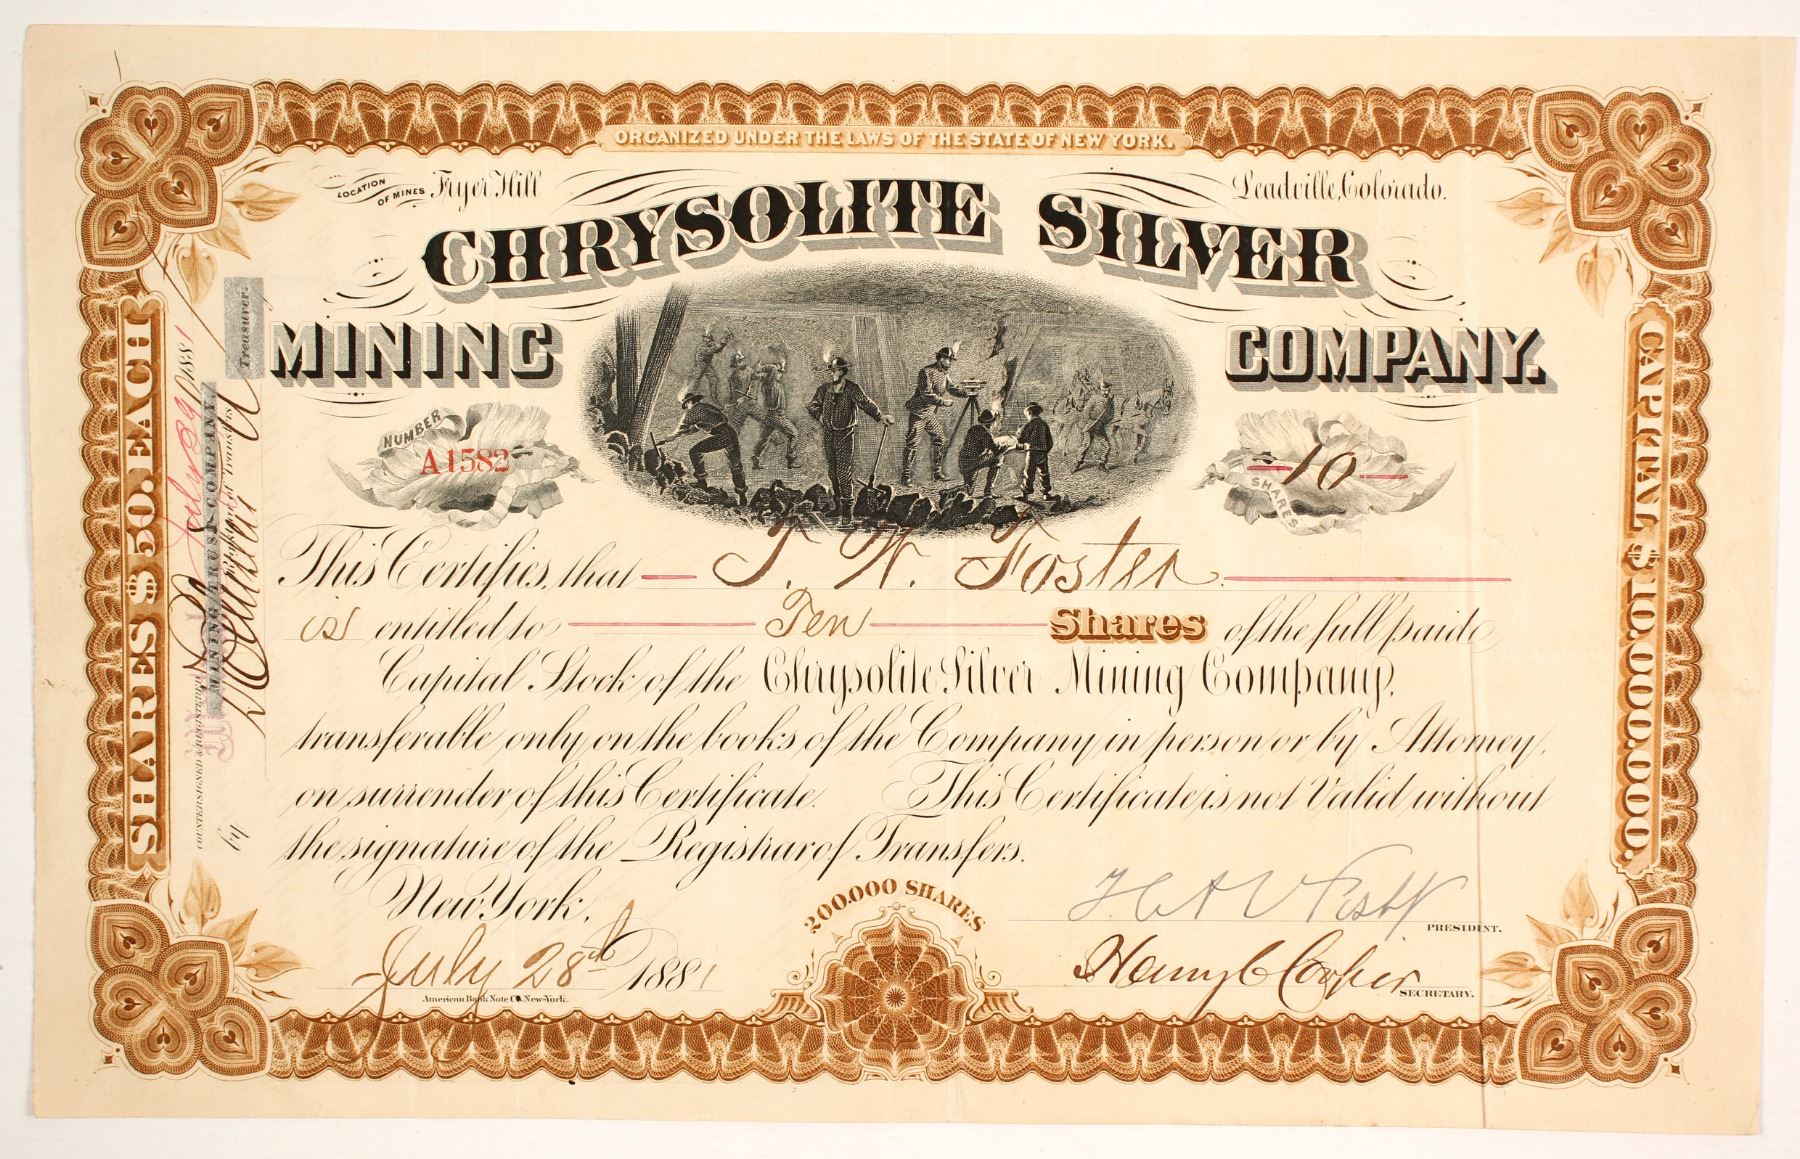 ORGANIZED UNDER THE LAWS OF THE STATE OF NEW YORK.
LOCATION OF MINES Fryer Hill
Leadville, Colorado.
CHRYSOLITE SILVER
MINING COMPANY.
NUMBER
A1582
10
SHARES
This Certifies, that T. W. Foster
is entitled to Ten Shares of the full paid
Capital Stock of the Chrysolite Silver Mining Company,
transferable only on the books of the Company in person or by Attorney,
on surrender of this Certificate. This Certificate is not Valid without
the signature of the Registrar of Transfers.
New York,
July 28th 1881
200,000 SHARES
PRESIDENT.
Henry C Cooper
SECRETARY.
American Bank Note Co. New-York.
SHARES $50. EACH
CAPITAL $10,000,000.
COUNTERSIGNED & REGISTERED
July 29 1881
MINING TRUST COMPANY,
Registrar of Transfers
by
Treasurer.